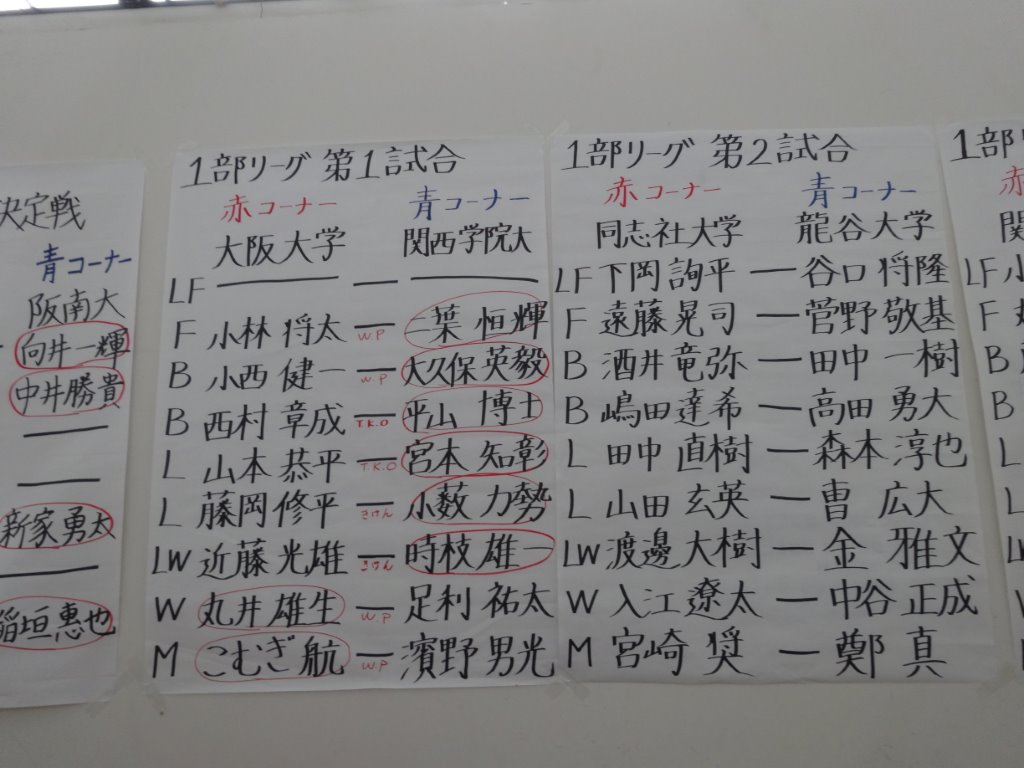 決定戦
青コーナー
阪南大
向井一輝
中井勝貴
新家勇太
稲垣惠也
1部リーグ 第1試合
赤コーナー 青コーナー
大阪大学 関西学院大
LF ―― ― ――
F 小林 将太 W.P 二葉 恒輝
B 小西 健一 W.P 大久保英毅
B 西村 章成 T.K.O 平山 博士
L 山本 恭平 T.K.O 宮本 知彰
L 藤岡修平 きけん 小薮 力勢
LW 近藤光雄 きけん 時枝 雄一
W 丸井 雄生 W.P 足利 祐太
M こむぎ 航 W.P 濱野 男光
1部リーグ 第2試合
赤コーナー 青コーナー
同志社大学 龍谷大学
LF 下岡 詢平 ― 谷口 将隆
F 遠藤晃司 ― 菅野 敬基
B 酒井 竜弥 ― 田中 一樹
B 嶋田達希 ― 高田 勇大
L 田中 直樹 ― 森本 淳也
L 山田 玄英 ― 曺 広大
LW 渡邊 大樹 ― 金 雅文
W 入江 遼太 ― 中谷 正成
M 宮崎 奨 ― 鄭 真
1部
赤
関
LF 小
F
B
B
L
L